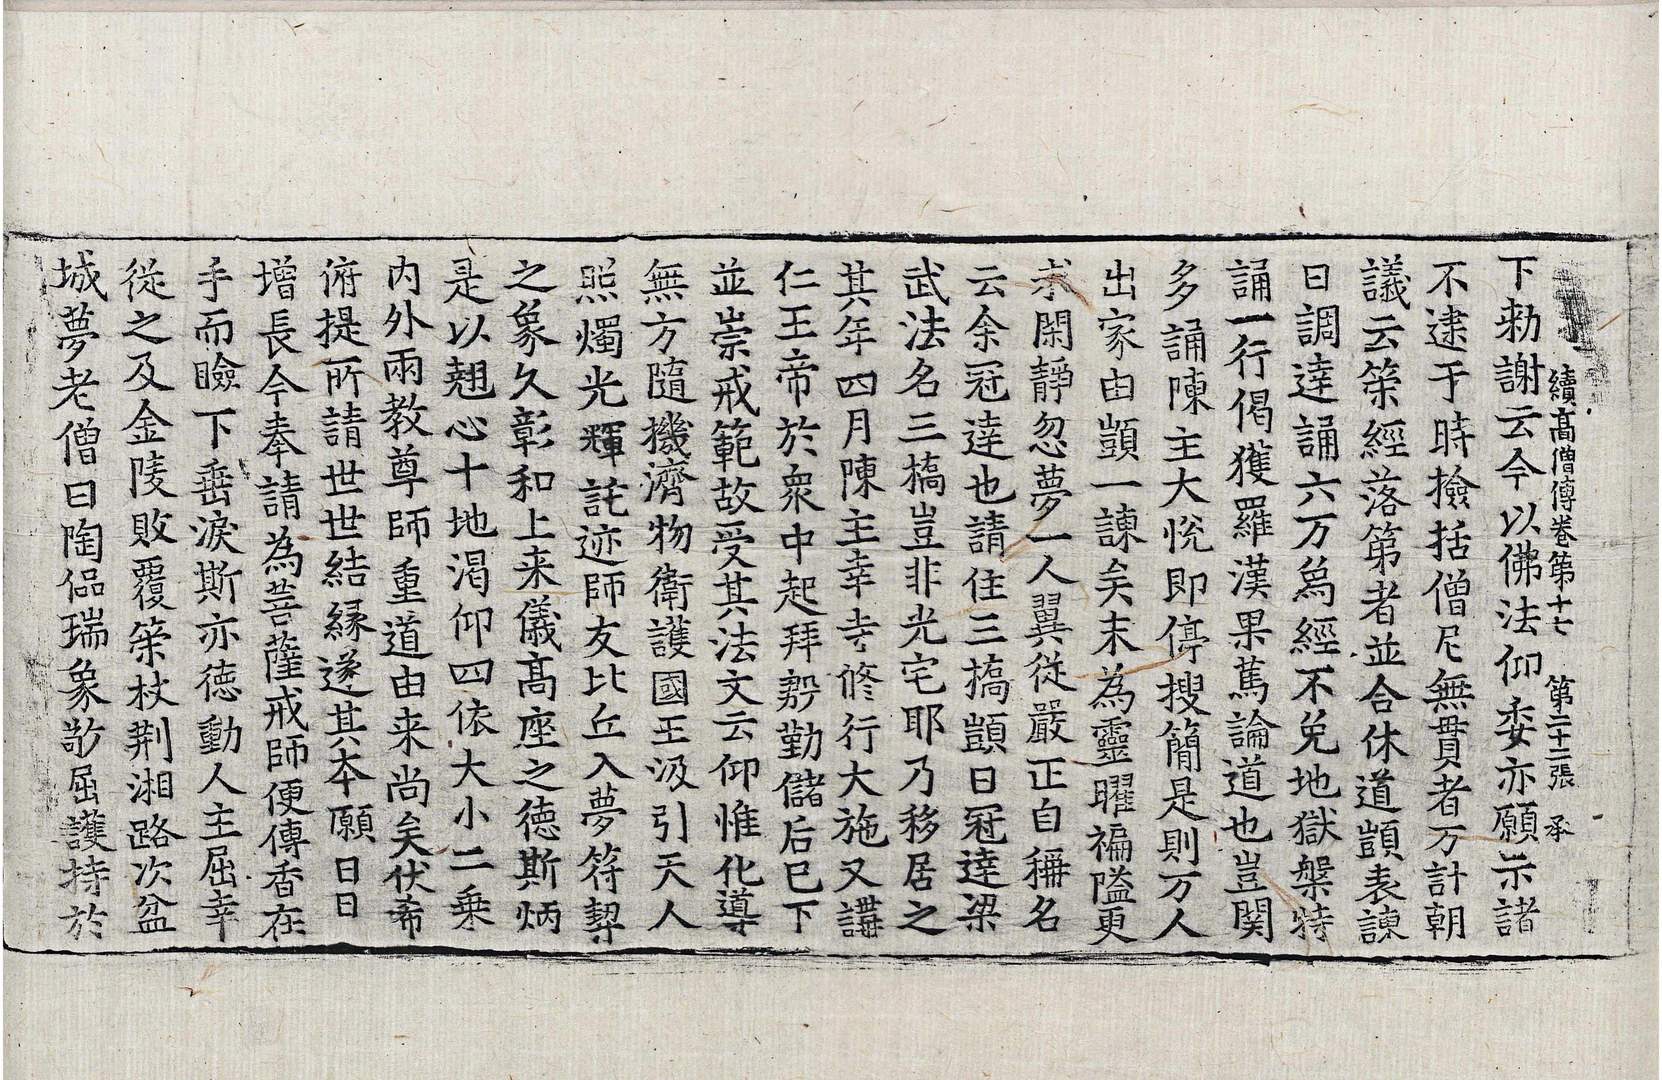 續高僧傳卷第十七 第二十二張 承
下勑謝云今以佛法仰委亦願示諸
不逮于時撿括僧尼無貫者万計朝
議云策經落第者並合休道顗表諫
曰調達誦六万爲經不免地獄槃特
誦一行偈獲羅漢果篤論道也豈関
多誦陳主大悅即停搜簡是則万人
出家由顗一諫矣末為靈曜褊隘更
求閑靜忽夢一人翼從嚴正自稱名
云余冠達也請住三撟顗曰冠達梁
武法名三撟豈非光宅耶乃移居之
其年四月陳主幸寺修行大施又講
仁王帝於衆中起拜慇勤儲后已下
並崇戒範故受其法文云仰惟化導
無方隨機濟物衛護國王汲引天人
照燭光輝託迹師友比丘入夢符契
之象久彰和上来儀髙座之徳斯炳
是以翹心十地渴仰四依大小二乗
內外兩教尊師重道由来尚矣伏希
俯提所請世世結縁遂其本願日日
增長今奉請為菩薩戒師便傳香在
手而瞼下垂淚斯亦徳動人主屈幸
從之及金陵敗覆策杖荆湘路次盆
城夢老僧曰陶侃瑞象敬屈護持於